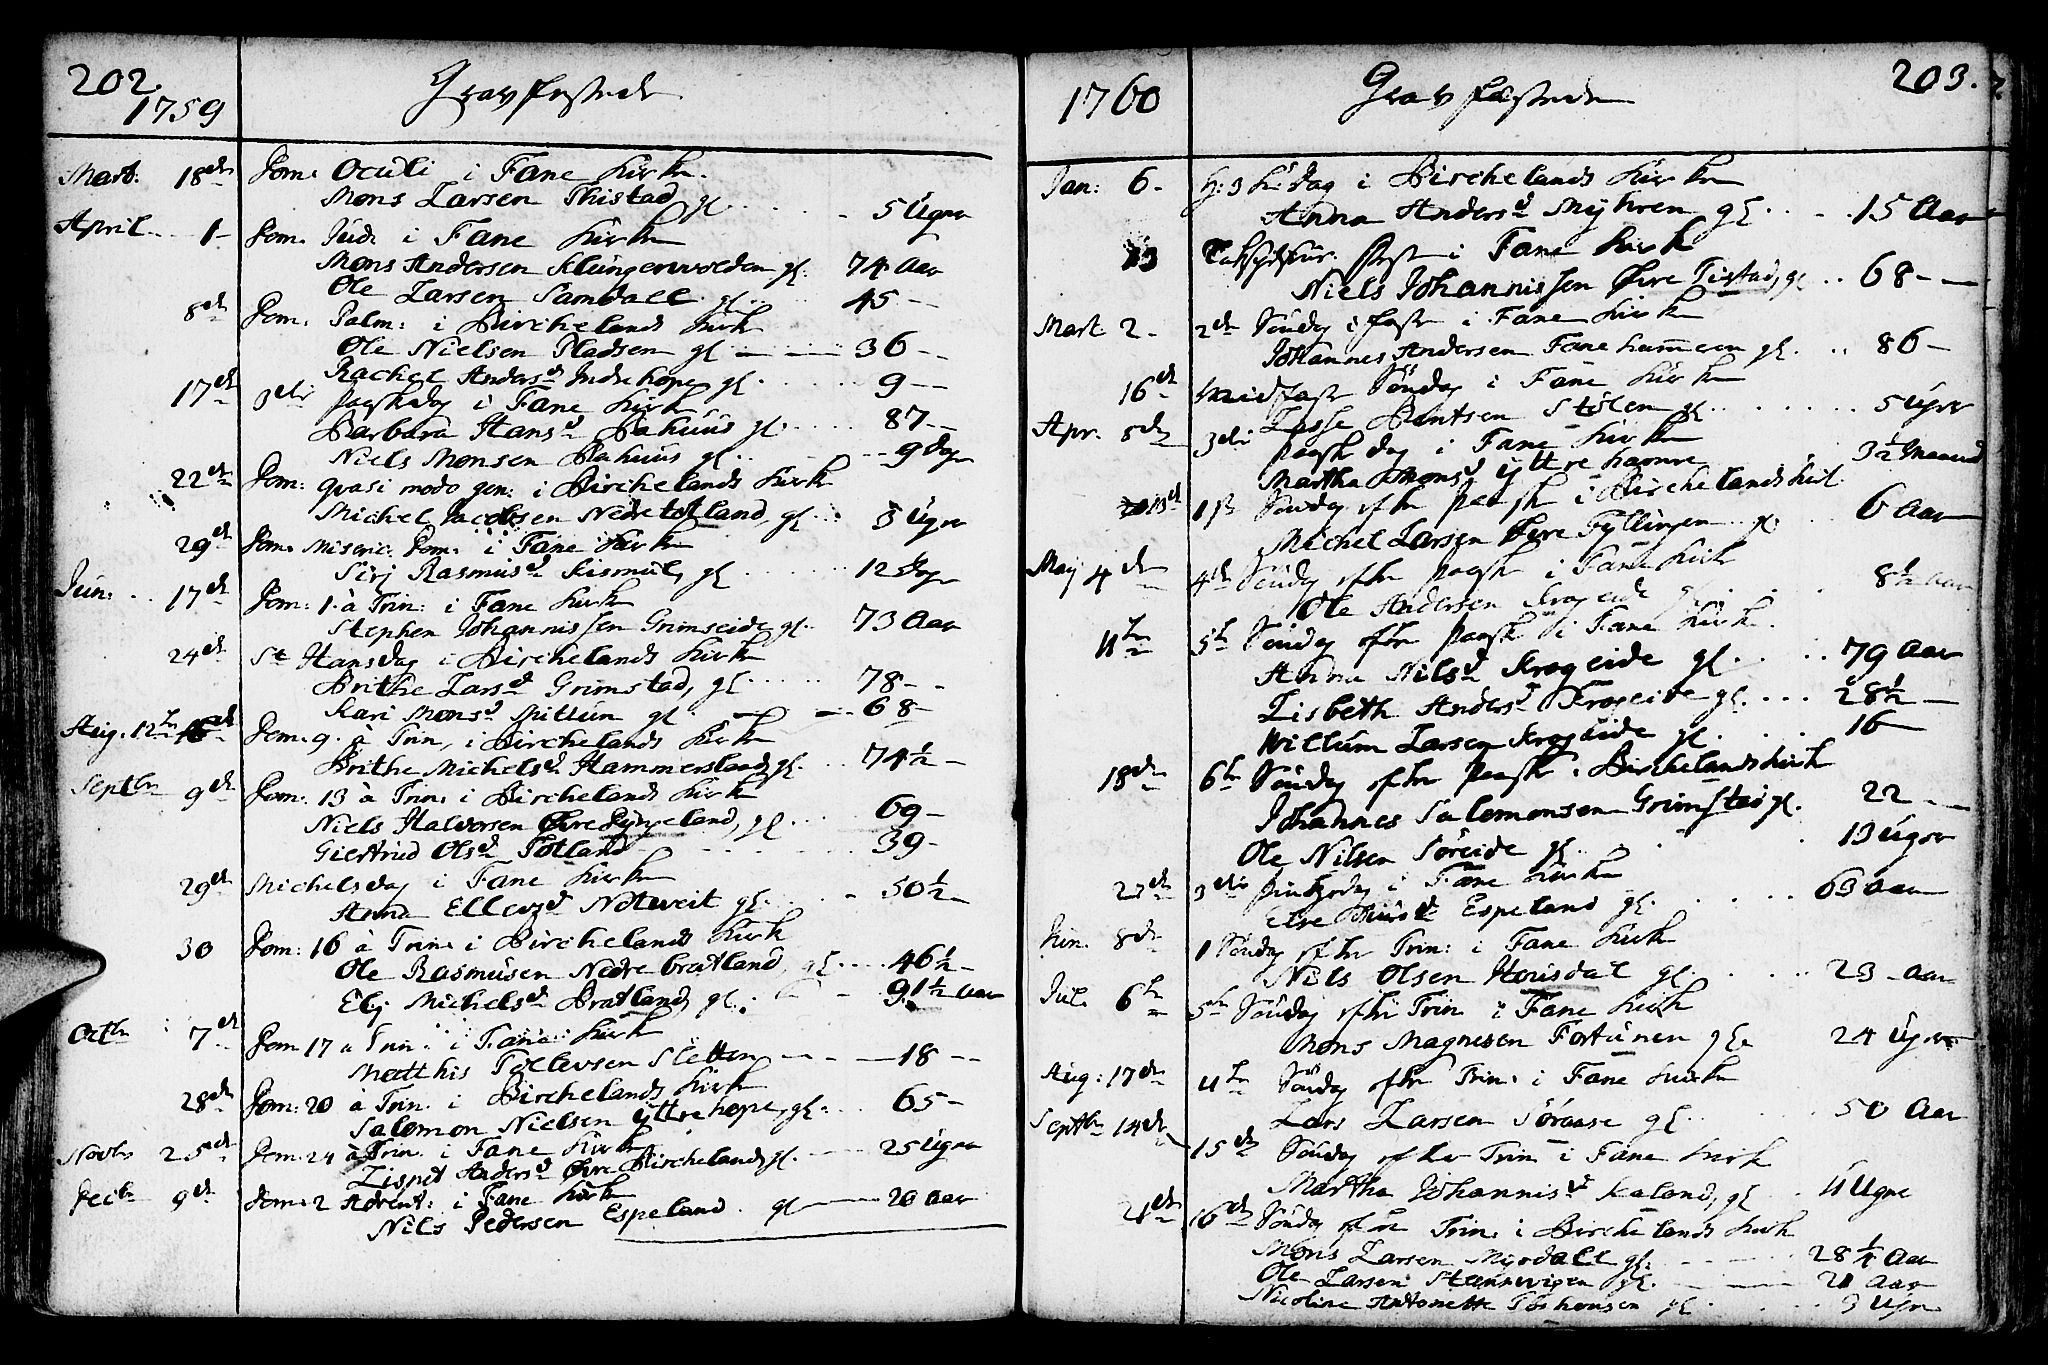 202.
1759
Gravfestede
Mart. 18de Dom. Oculi i Fane Kirke.
Mons Larsen Thistad, gl. 5 Ugner
April 1 Dom. Jud. i Fane Kirke
Mons Andersen Klungervolden gl. 74 Aar
Ole Larsen Samdall gl. 45
8de Dom. Palm: i Birchelands Kirke
Ole Nielsen Pladsen gl 36
Rachel Andersd Indrehope, gl. 9
17de 3die Paaskedag i Fane Kirke
Barbara Hansd Bahuus gl. 87
Niels Monsen Bahuus gl. 9 Dage
22de Dom: Quasi modo gen: i Birchelands Kirke
Michel Jacobsen Nedretotland, gl. 3 Ugner
29de Dom. Miseric. Dom. i Fane Kirke
Sirj Rasmusd Kismul, gl 12 Dage
Jun. 17de Dom: 1. à Trin: i Fane Kirke
Stephen Johannissen Grimseide, gl. 73 Aar
24de St Hansdag i Birchelands Kirke
Brithe Larsd Grimstad, gl 78
Kari Monsd Mittun gl. 68
Aug. 12te Dom. 9. à Trin, i Birchelands Kirke
Brithe Michelsd Hammersland gl. 74½
Septbr 9de Dom. 13 à Trin: i Birchelands Kirke
Niels Halvorsen Øvre gl. 69
Giertrud Olsd Totland 39
29de Michelsdag i Fane Kirke
Anna Ellevzd Natveit gl. 50½
30 Dom: 16 à Trin. i Birchelands Kirke
Ole Rasmusen Nedre bratland, gl. 46½
Elj Michelsd Bratland, gl. 91½ Aar
Octbr 7de Dom 17 a Trin. i Fane Kirke
Matthis Tollevsen Sletten 18
28de Dom: 20 à Trin. i Birchelands Kirke
Salomon Nielsen Yttrehope, gl. 65
Novbr 25de Dom. 24 à Trin. i Fane Kirke
Lispet Andersd Øvre Bircheland gl. 25 Ugner
Decbr 9de Dom. 2 Advent: i Fane Kirke
Nils Pedersen Espeland. gl 20 Aar
203.
1760
Gravfestede
Jan: 6. H: 3 K. dag i Birchelands Kirke
Anna Andersd Myhren gl. 15 Aar
13 i Fane Kirke
Niels Johannissen Øvre Tistad, gl 68
Mart 2 2de Søndag i Faste i Fane Kirke
Johannes Andersen Fanehammeren gl. 86
16de Midfaste Søndag i Fane Kirke
Lasse Bentsen Stølen gl. 5 Ugner
Apr. 8de 3die Paaske dag i Fane Kirke
Martha Monsd Yttrehamre 3½ Maaned
13de 1ste Søndag efter Paaske i Birchelands Kirke
Michel Larsen Øvre Fyllingen gl. 6 Aar
Maj 4de 4de Søndag efter Paaske i Fane Kirke
Ole Andersen Krogeide gl. 8½ Aar
11te 5te Søndag efter Paaske i Fane Kirke.
Anna Nilsd Krogeide gl. 79 Aar
Lisbeth Andersd Krogeide gl. 28½
Willum Larsen Krogeide gl. 16
18de 6te Søndag efter Paaske i Birchelands Kirke
Johannes Salomonsen Grimstad gl. 22
Ole Nilsen Søreide gl. 13 Ugner
27de 3die Pintzedag i Fane Kirke
Espeland gl. 63 Aar
Jun. 8de 1 Søndag efter Trin: i Fane Kirke
Nils Olsen Housdal gl. 23 Aar
Jul. 6te 5te Søndag efter Trin i Fane Kirke
Mons Magnesen Fortunen gl. 24 Ugner
Aug: 17de 11te Søndag efter Trin. i Fane Kirke
Lars Larsen Søraase gl. 50 Aar
Septbr 14de 15de Søndag efter Trin i Fane Kirke
Martha Johannisd Kaland, gl. 11 Ugner
21de 16de Søndag efter Trin. i Birchelands Kirke
Mons Larsen Myrdall gl. 28¼ Aar
Ole Larsen Stensvigen gl. 21 Aar
Nicoline Antonette gl. 3 Ugner